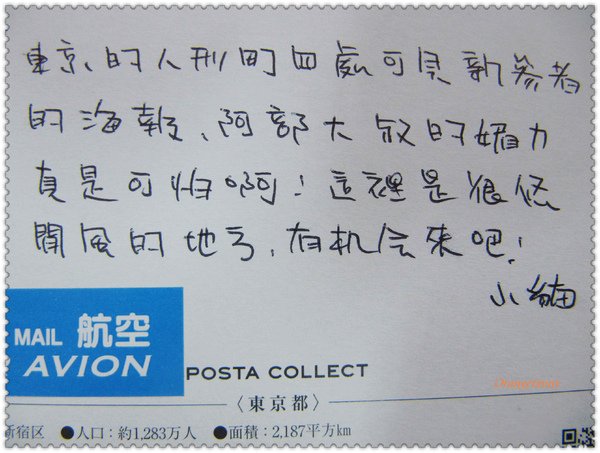 東京、的人形町四處可見新參者
的海報、阿部大叔的媚力
真是可怕啊！這裡是很悠
閒風的地方，有机会來吧！
小
MAIL 航空
AVION
POSTA COLLECT
〈東京都〉
新宿区 ●人口：約1,283万人 ●面積：2,187平方km